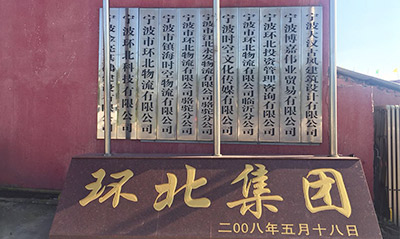 宁波市环北物流有限公司
宁波镇海时空物流有限公司
宁波市环北物流有限公司骆驼分公司
宁波时空文化传媒有限公司
宁波市环北物流有限公司临沂分公司
宁波环北投资管理咨询有限公司
宁波博嘉伟业贸易有限公司
宁波大汉古风建筑设计有限公司
环北集团
二〇〇八年五月十八日